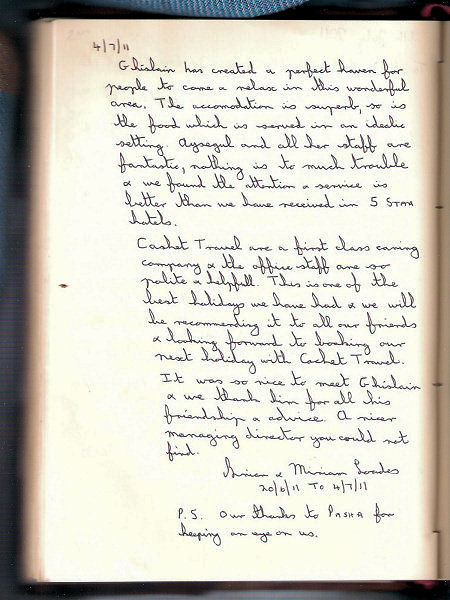 4/7/11
Ghislain has created a perfect haven for
people to come a relax in this wonderful
area. The accomodation is superb, so is
the food which is served in an idealic
setting. Aysegul and all her staff are
fantastic, nothing is to much trouble
& we found the attention & service is
better than we have received in 5 STAR
hotels.
Cachet Travel are a first class caring
company & the office staff are so
polite & helpfull. This is one of the
best holidays we have had & we will
be recommending it to all our friends
& looking forward to booking our
next holiday with Cachet Travel.
It was so nice to meet Ghislain
& we thank him for all his
friendship & advice. A nicer
managing director you could not
find.
Brian & Miriam
20/6/11 TO 4/7/11
P.S. Our thanks to PASHA for
keeping an eye on us.